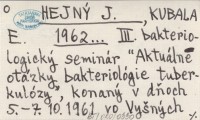 o HEJNÝ J., KUBALA
E. 1962... III. bakterio-
logický seminár "Aktuálne
otázky bakteriológie tuber-
kulózy", konaný v dňoch
5.-7.10.1961 vo Vyšných